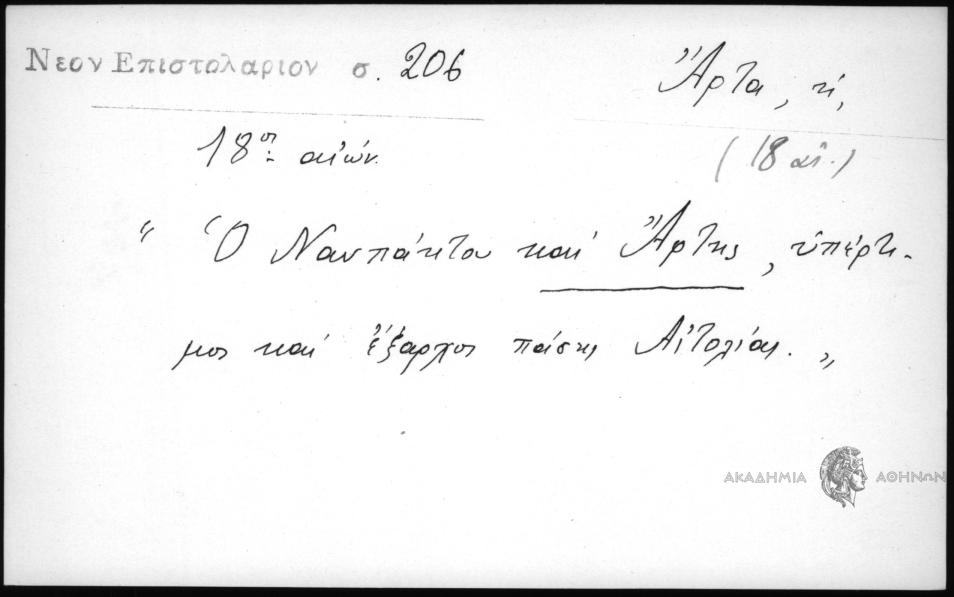 Νεον Επιστολαριον σ. 206
Ἄρτα, ἡ,
18ος αἰών.
(18 αἰ.)
“ Ὁ Ναυπάκτου καὶ Ἄρτης, ὑπέρτι-
μος καὶ ἔξαρχος πάσης Αἰτολίας. „
ΑΚΑΔΗΜΙΑ ΑΘΗΝΩΝ